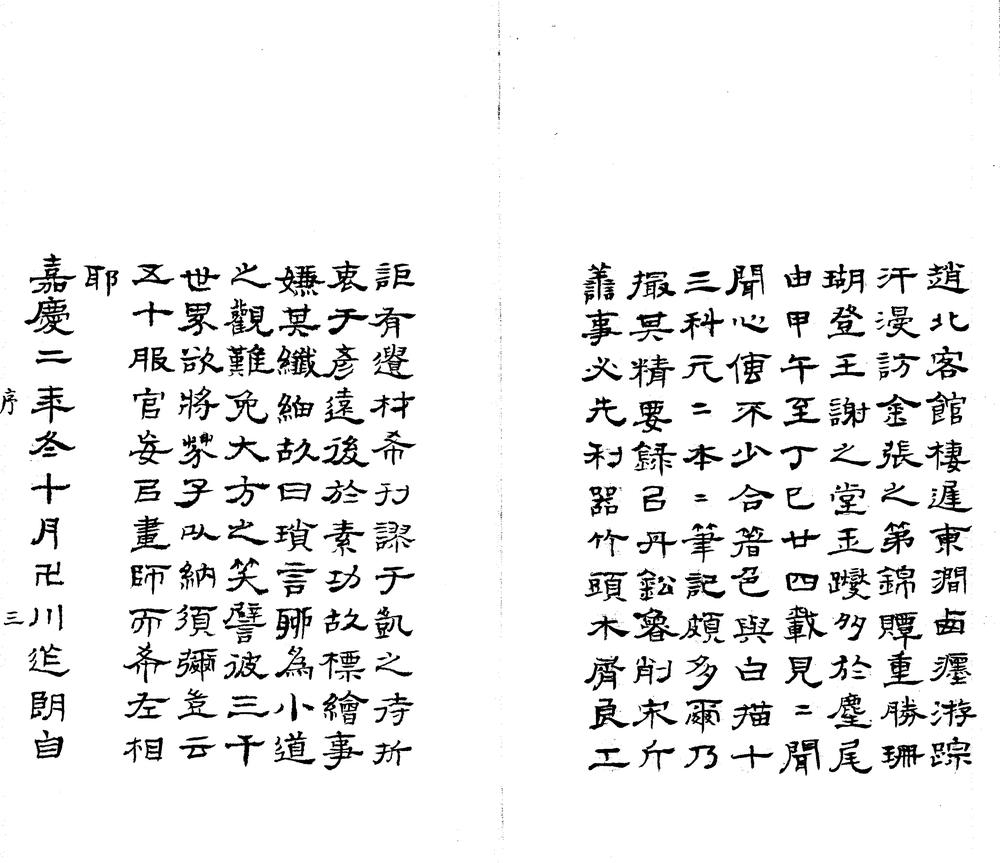 趙北客館棲遲東澗卥瀍游踪
汗漫訪金張之第錦贉重勝珊
瑚登王謝之堂玉躞多於麈尾
由甲午至丁巳廿四載見〻聞
聞心傳不少合著色與白描十
三科元〻本〻筆記頗多爾乃
撮其精要錄㠯丹鈆魯削宋斤
譱事必先利器竹頭木屑良工
詎有遺材希刊謬于凱之待折
衷于彥遠後於素功故標繪事
嫌其纖細故曰瑣言聊為小道
之觀難免大方之笑譬彼三千
世界欲將芥子以納須彌豈云
五十服官妄㠯畫師而希左相
耶
嘉慶二年冬十月卍川迮朗自
序 三